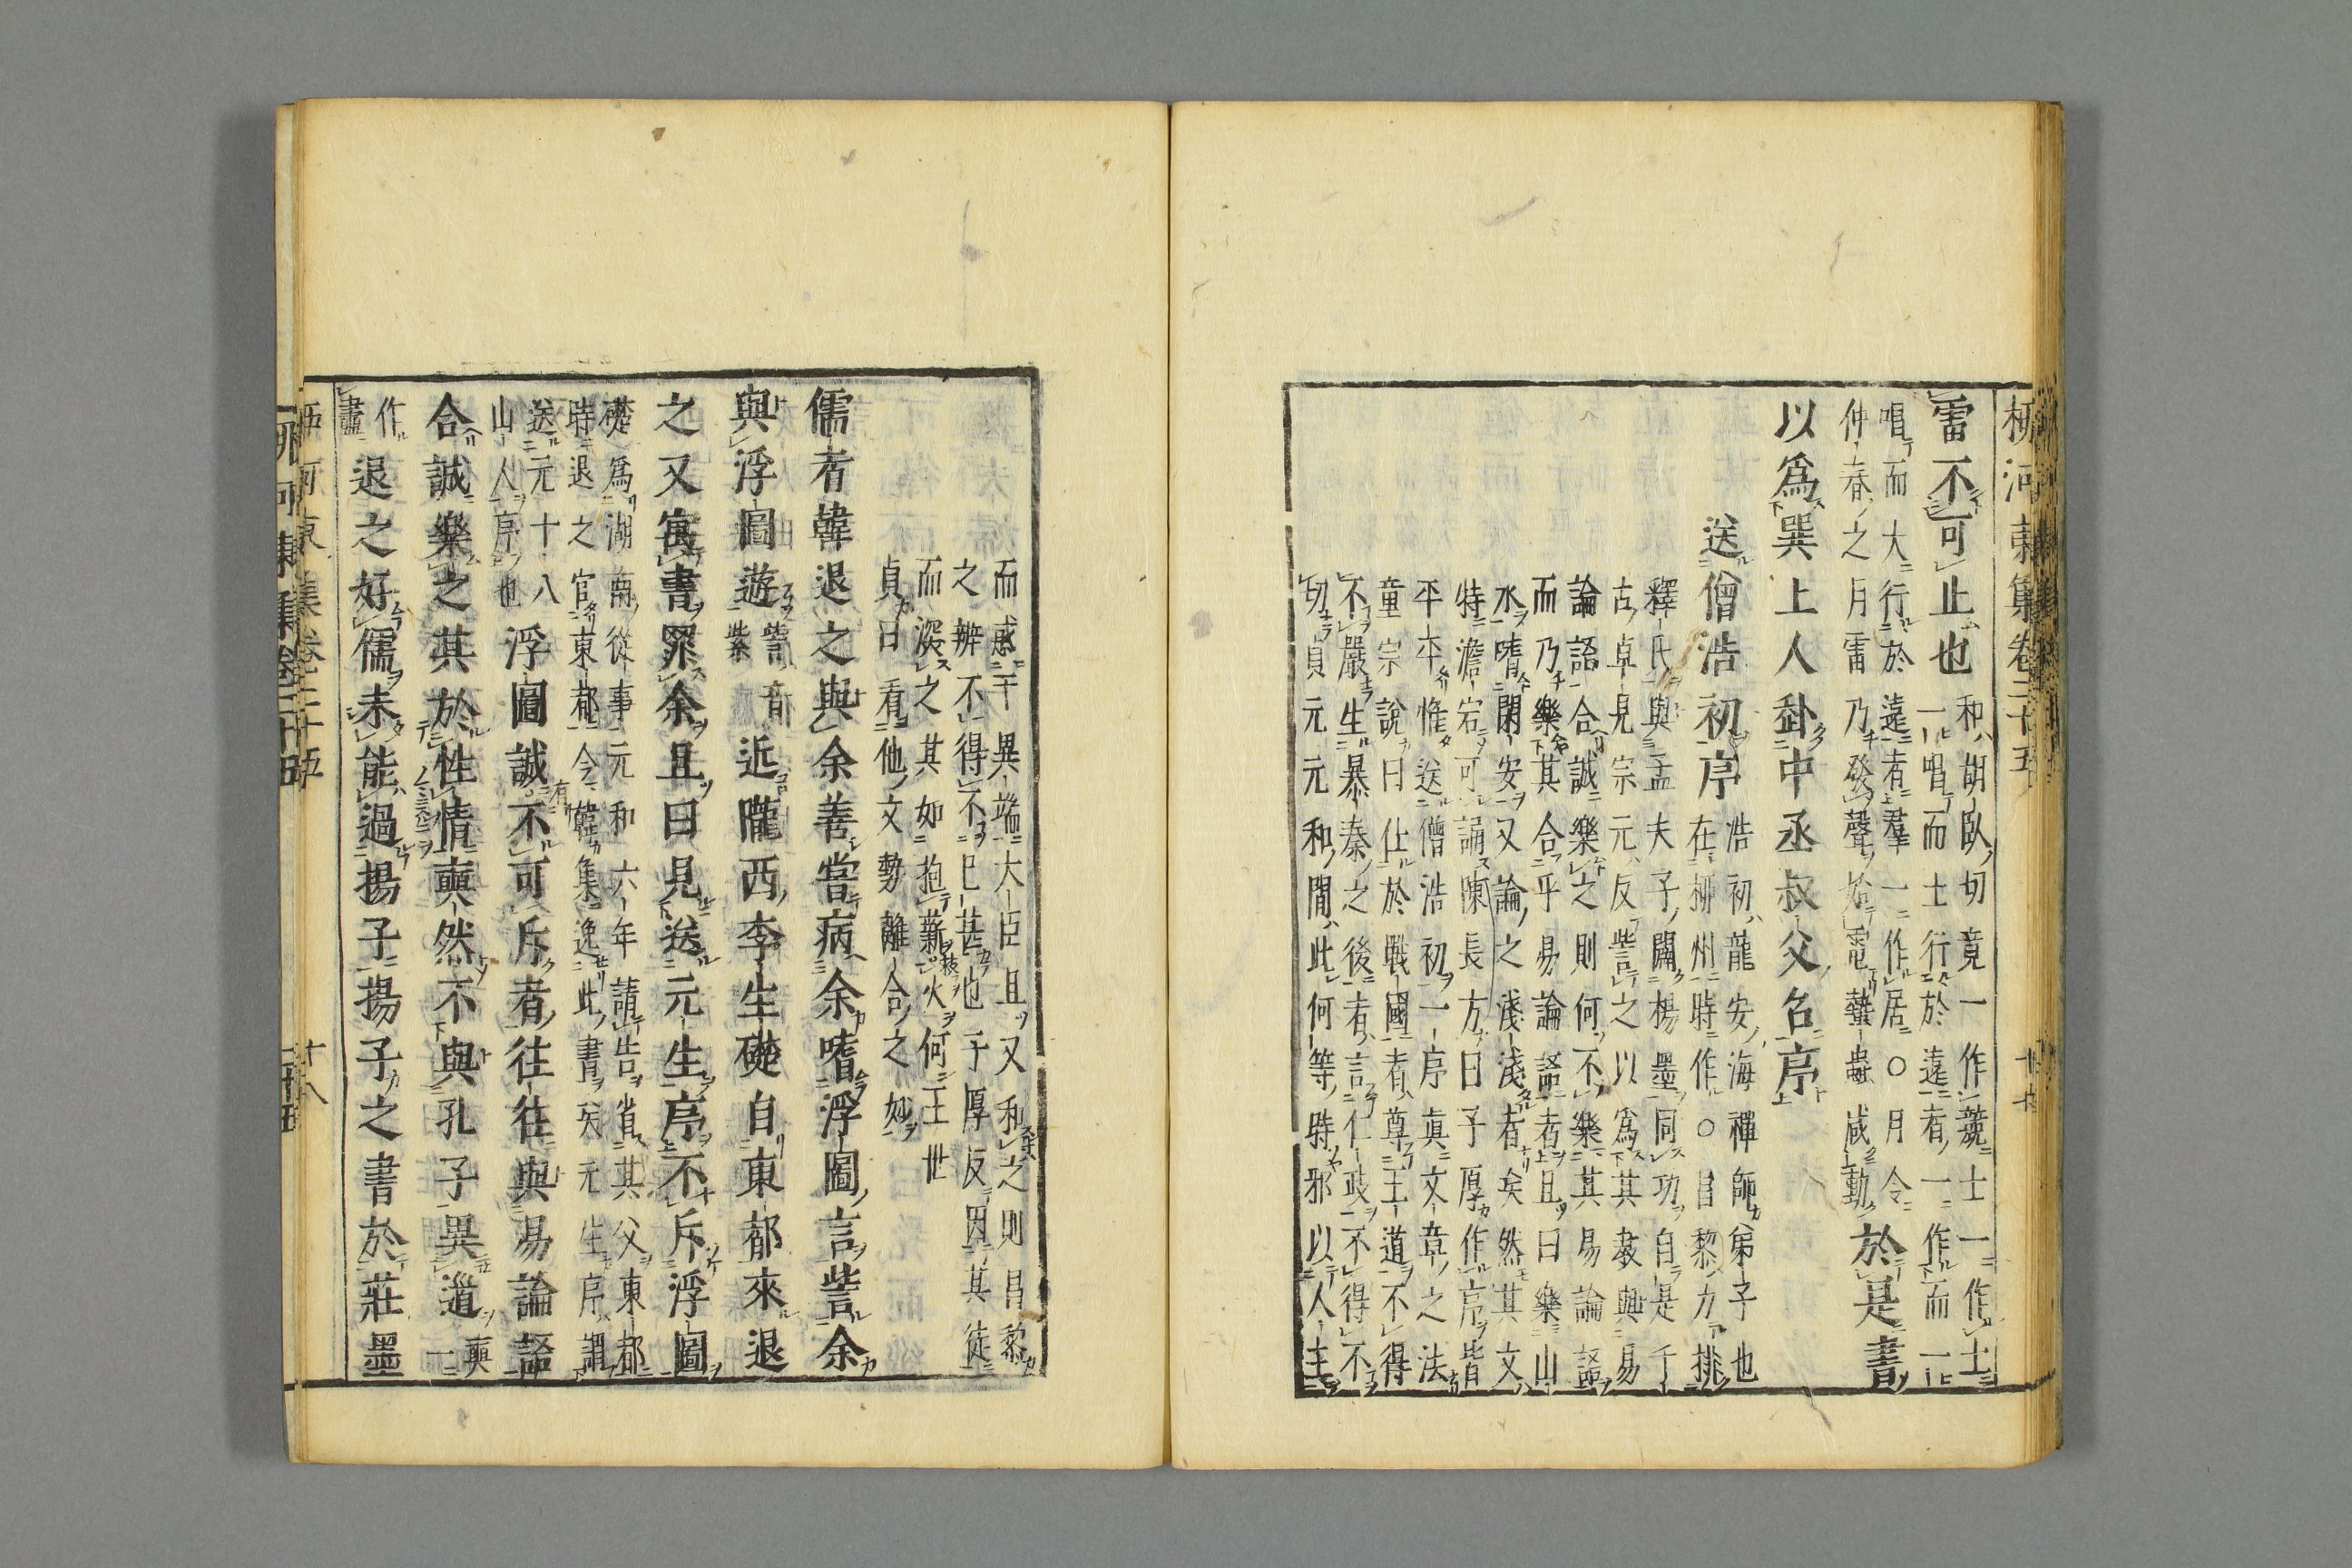 柳河東集卷二十五
雷不可止也和胡臥切竟一作競士一作士
一唱而士行於遠者一作而一
唱而大行於遠者羣一作居○月令
仲春之月雷乃發聲始電蟄蟲咸動於是書
以爲巽上人赴中丞叔父名序
送僧浩初序浩初龍安海禪師弟子也
在柳州時作○昌黎力排
釋氏與孟夫子闢楊墨同功自是千
古卓見宗元反訾之以爲其衷與易
論語合誠樂之則何不樂其易論語
而乃樂其合乎易論語者且曰樂山
水嗜閑安又論之淺淺者矣然其文
特澹宕可誦陳長方曰子厚作序皆
平平惟送僧浩初一序眞文章之法
童宗說曰仕於戰國者尊王道不得
不嚴生暴秦之後者言仁政不得不
切貞元元和間此何等時邪以人主
而惑于異端大臣且又和之則昌黎
之辨不得不已甚也子厚反因其徒
而滋之其如抱薪火何王世
貞曰看他文勢離合之妙
儒者韓退之與余善嘗病余嗜浮圖言訾余
與浮圖遊訾音紫近隴西李生礎自東都來退
之又寓書罪余且曰見送元生序不斥浮圖
礎爲湖南從事元和六年請告省其父東都
時退之官東都今韓集逸此書矣元生序謂
送元十八
山人序也浮圖誠有不可斥者往往與易論語
合誠樂之其於性情奭然不與孔子異道奭一
作
盡退之好儒未能過揚子揚子之書於莊墨
柳河東集卷二十五
十八